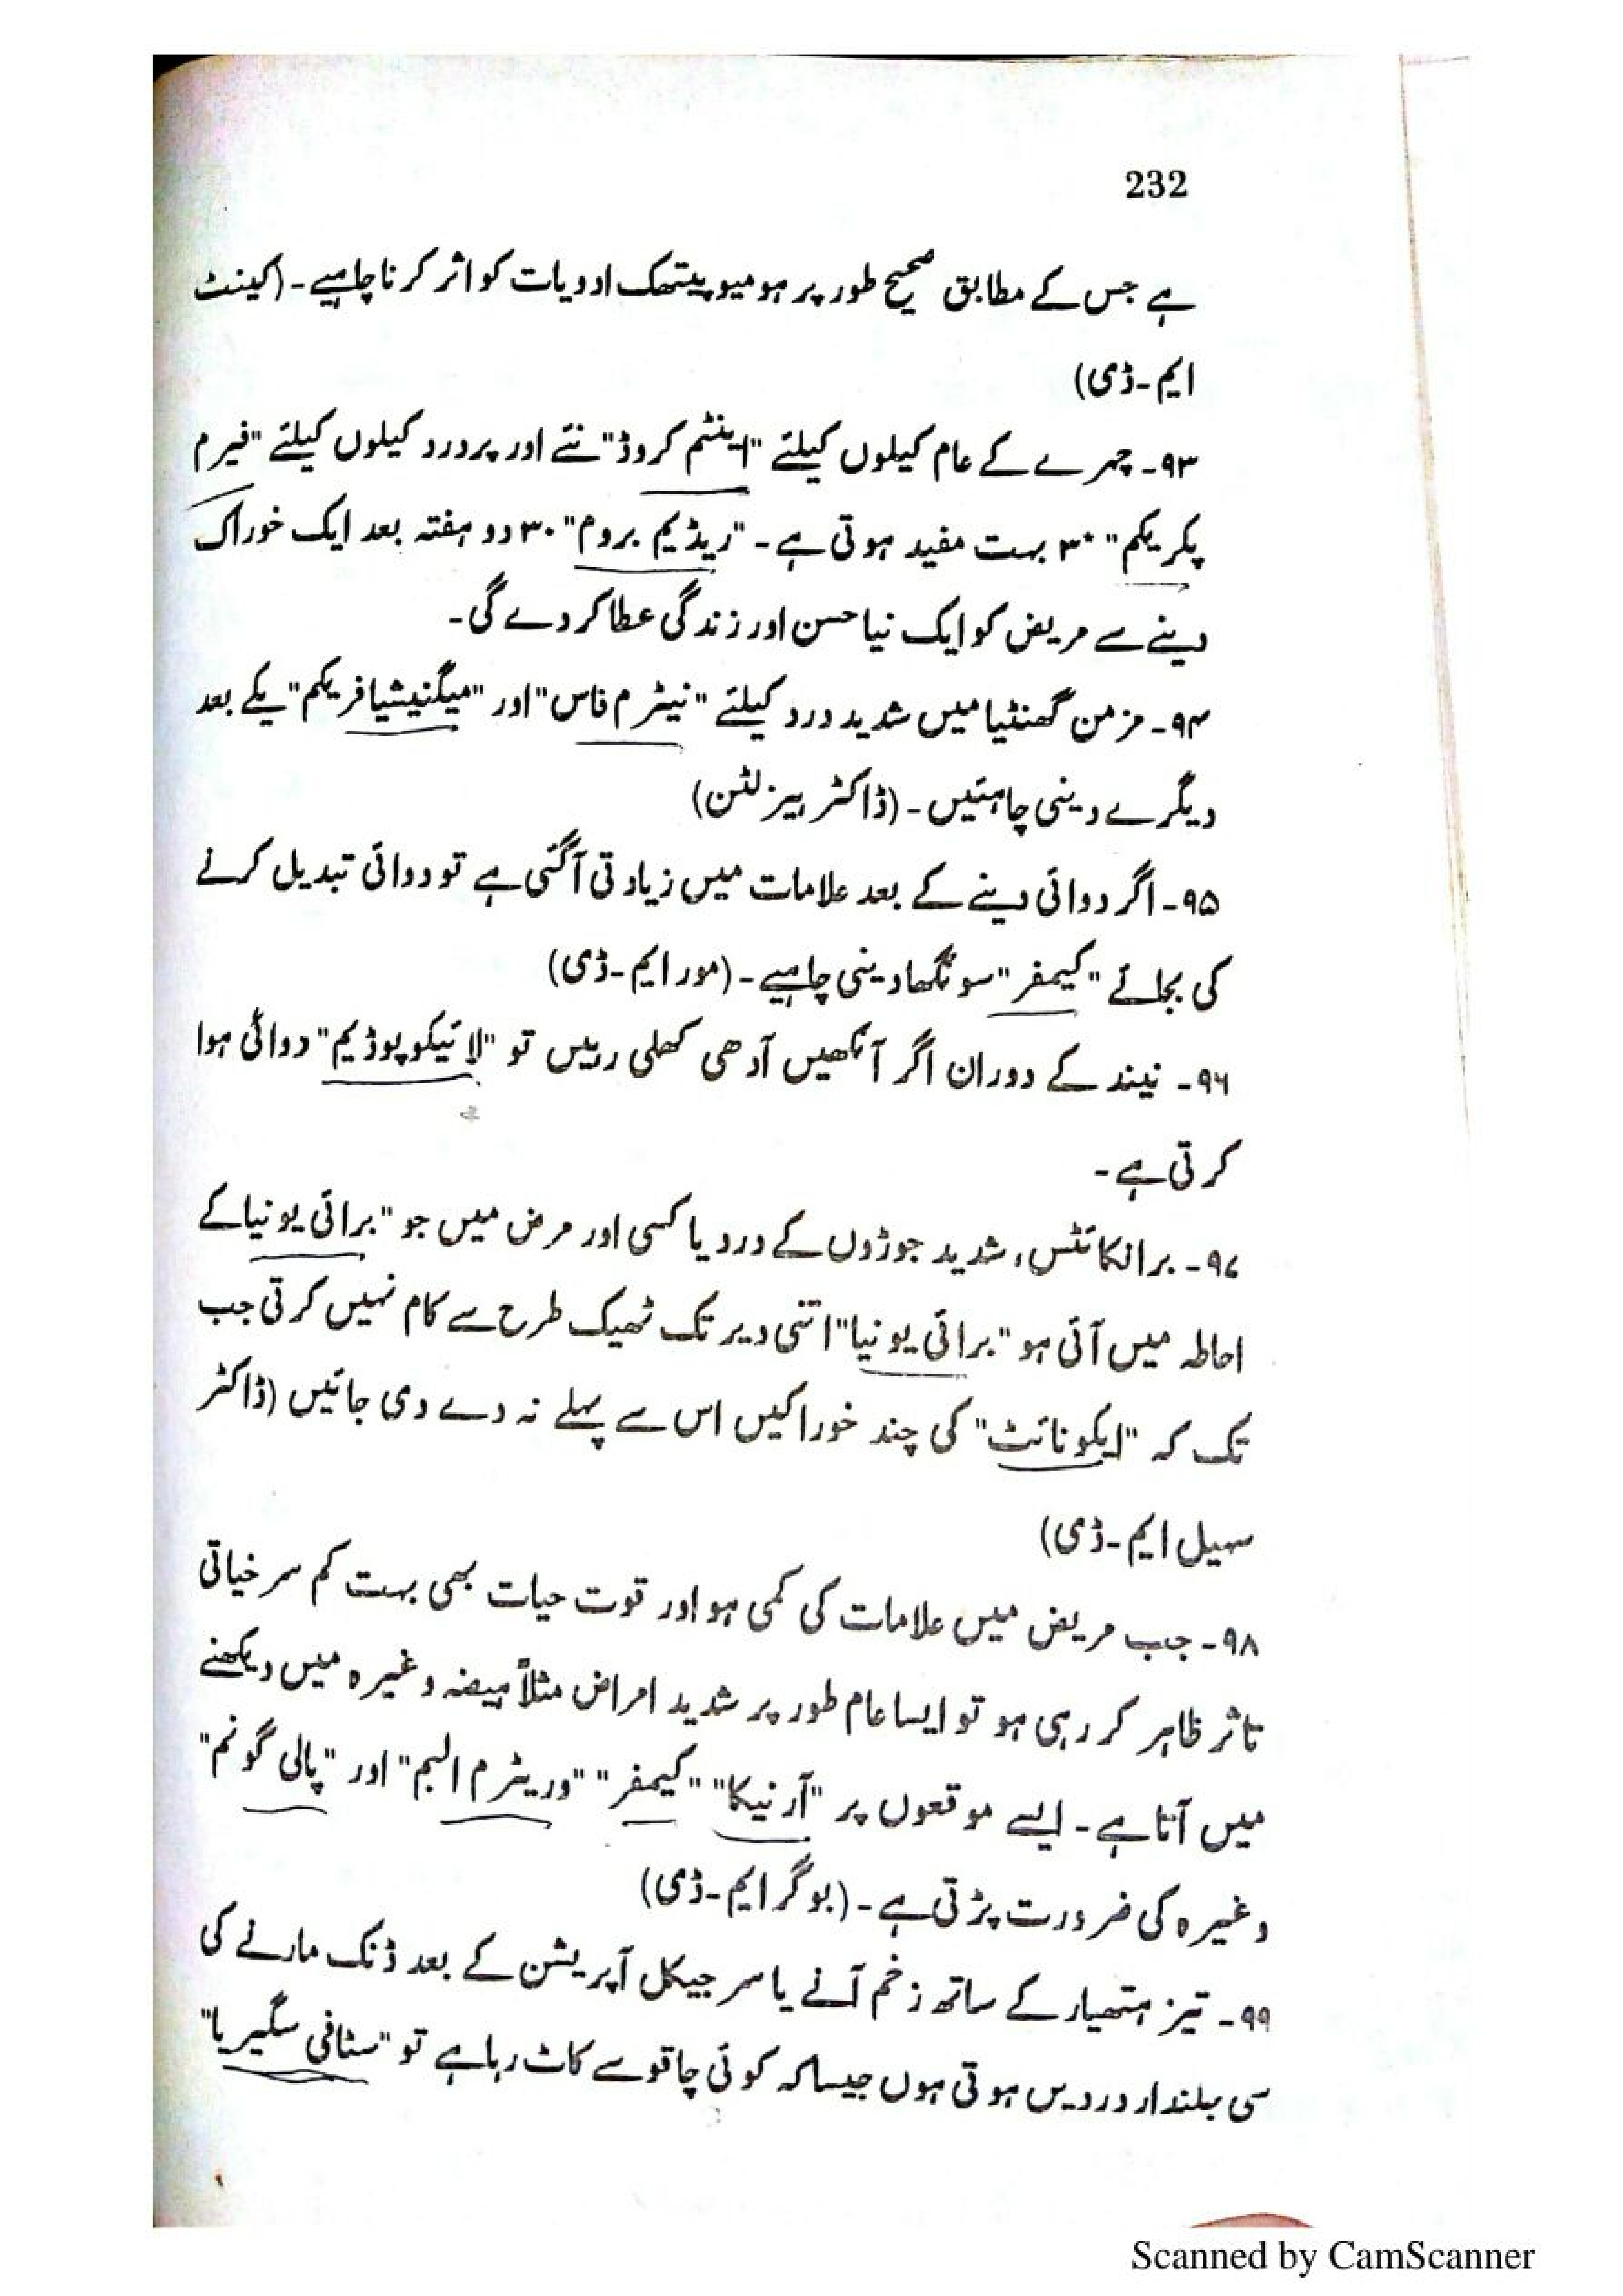 232
ہے جس کے مطابق صحیح طور پر ہومیوپیتھک ادویات کو اثر کرنا چاہیے۔ (کینٹ
ایم۔ڈی)
۹۳۔ چہرے کے عام کیلوں کیلئے "اینٹم کروڈ" نئے اور پردرد کیلوں کیلئے "فیرم
پکریکم" ۳* بہت مفید ہوتی ہے۔ "ریڈیم بروم" ۳۰ دو ہفتہ بعد ایک خوراک
دینے سے مریض کو ایک نیا حسن اور زندگی عطا کر دے گی۔
۹۴۔ مزمن گھنٹیا میں شدید درد کیلئے "نیٹرم فاس" اور "میگنیشیا فریکم" یکے بعد
دیگرے دینی چاہئیں۔ (ڈاکٹر بیزلٹن)
۹۵۔ اگر دوائی دینے کے بعد علامات میں زیادتی آ گئی ہے تو دوائی تبدیل کرنے
کی بجائے "کیمفر" سونگھا دینی چاہیے۔ (مور ایم۔ڈی)
۹۶۔ نیند کے دوران اگر آنکھیں آدھی کھلی رہیں تو "لائیکوپوڈیم" دوائی ہوا
کرتی ہے۔
۹۷۔ برانکائٹس، شدید جوڑوں کے درد یا کسی اور مرض میں جو "برائی یونیا کے
احاطہ میں آئی ہو "برائی یونیا" اتنی دیر تک ٹھیک طرح سے کام نہیں کرتی جب
تک کہ "ایکونائٹ" کی چند خوراکیں اس سے پہلے نہ دے دی جائیں (ڈاکٹر
سہیل ایم۔ڈی)
۹۸۔ جب مریض میں علامات کی کمی ہو اور قوت حیات بھی بہت کم سرخیاتی
تاثر ظاہر کر رہی ہو تو ایسا عام طور پر شدید امراض مثلاً ہیضہ وغیرہ میں دیکھنے
میں آتا ہے۔ ایسے موقعوں پر "آرنیکا" "کیمفر" "وریٹرم البم" اور "پالی گونم"
وغیرہ کی ضرورت پڑتی ہے۔ (بوگر ایم۔ڈی)
۹۹۔ تیز ہتھیار کے ساتھ زخم آنے یا سرجیکل آپریشن کے بعد ڈنک مارنے کی
سی ہلندار دردیں ہوتی ہوں جیسا کہ کوئی چاقو سے کاٹ رہا ہے تو "سٹافی سگیریا"
Scanned by CamScanner